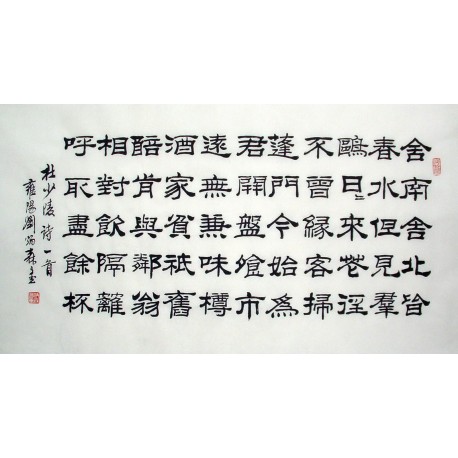 舍南舍北皆
春水但見羣
鷗日〻來花徑
不曾緣客掃
蓬門今始為
君開盤飧市
遠無兼味樽
酒家貧祗舊
醅肯與鄰翁
相對飲隔籬
呼取盡餘杯
杜少陵詩一首
雍陽劉炳森書